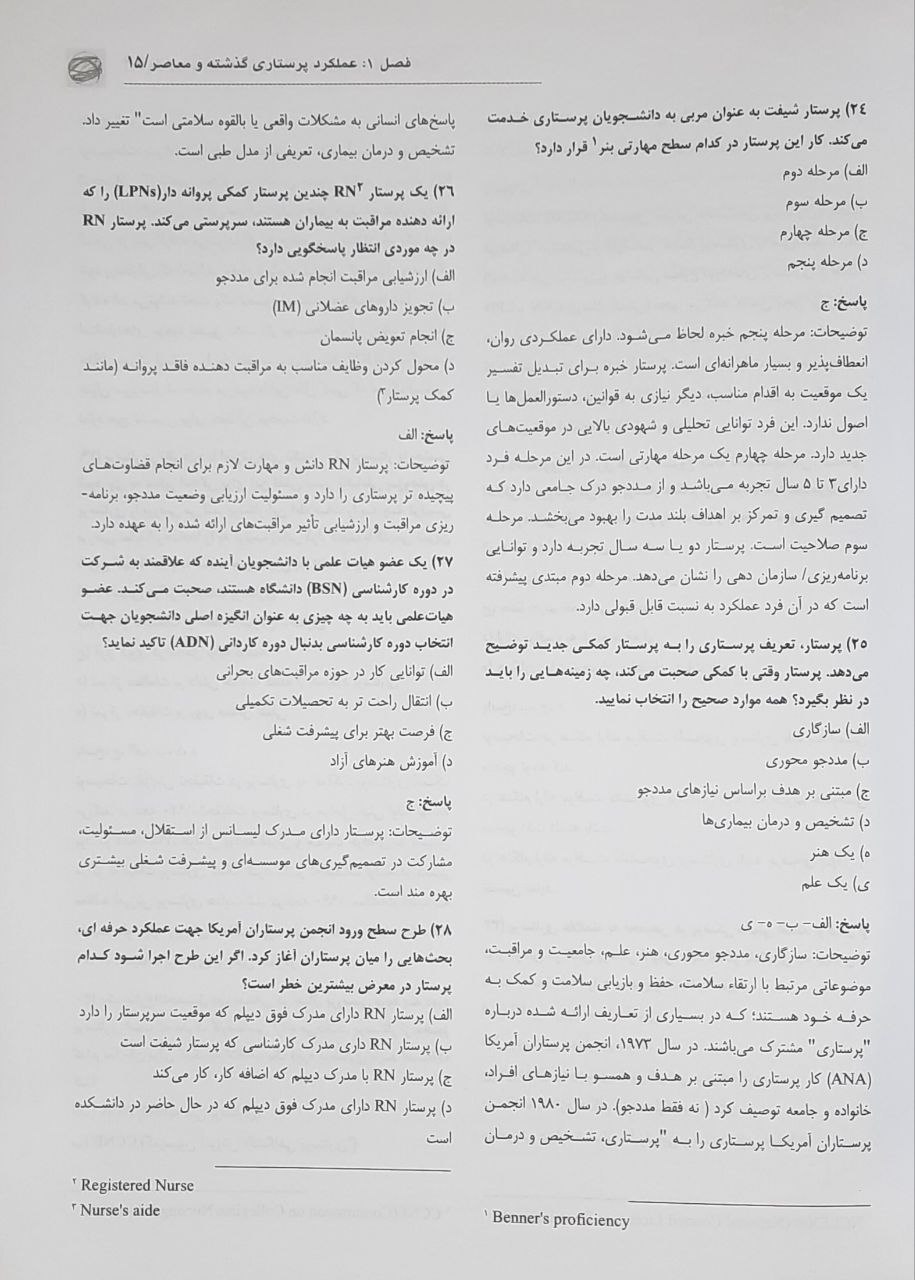 فصل ۱: عملکرد پرستاری گذشته و معاصر/۱۵
۲٤) پرستار شیفت به عنوان مربی به دانشـجویان پرسـتاری خـدمت
می‌کند. کار این پرستار در کدام سطح مهارتی بنر۱ قرار دارد؟
الف) مرحله دوم
ب) مرحله سوم
ج) مرحله چهارم
د) مرحله پنجم
پاسخ: ج
توضیحات: مرحله پنجم خبره لحاظ می‌شود. دارای عملکـردی روان،
انعطاف‌پذیر و بسیار ماهرانه‌ای است. پرستار خبره بـرای تبـدیل تفسـیر
یک موقعیت به اقدام مناسب، دیگر نیازی به قوانین، دستورالعمل‌ها یـا
اصول ندارد. این فرد توانایی تحلیلی و شهودی بالایی در موقعیت‌های
جدید دارد. مرحله چهارم یک مرحله مهارتی است. در این مرحلـه فـرد
دارای۳ تا ۵ سال تجربه مـی‌باشـد و از مـددجو درک جـامعی دارد کـه
تصمیم گیری و تمرکز بر اهداف بلند مدت را بهبود می‌بخشـد. مرحلـه
سوم صلاحیت اسـت. پرسـتار دو یـا سـه سـال تجربـه دارد و توانـایی
برنامه‌ریزی/ سازمان دهی را نشان می‌دهد. مرحله دوم مبتدی پیشرفته
است که در آن فرد عملکرد به نسبت قابل قبولی دارد.
۲۵) پرستار، تعریف پرستاری را بـه پرسـتار کمکـی جدیـد توضـیح
می‌دهد. پرستار وقتی با کمکی صحبت می‌کند، چه زمینه‌هایی را بایـد
در نظر بگیرد؟ همه موارد صحیح را انتخاب نمایید.
الف) سازگاری
ب) مددجو محوری
ج) مبتنی بر هدف براساس نیازهای مددجو
د) تشخیص و درمان بیماری‌ها
ه) یک هنر
ی) یک علم
پاسخ: الف- ب- ه- ی
توضیحات: سازگاری، مددجو محوری، هنر، علـم، جامعیـت و مراقبـت،
موضوعاتی مرتبط با ارتقاء سلامت، حفظ و بازیابی سلامت و کمک بـه
حرفه خود هسـتند؛ کـه در بسـیاری از تعـاریف ارائـه شـده دربـاره
"پرستاری" مشترک می‌باشند. در سال ۱۹۷۳، انجمن پرستاران آمریکا
(ANA) کار پرستاری را مبتنی بر هدف و همسو بـا نیازهـای افـراد،
خانواده و جامعه توصیف کرد ( نه فقط مددجو). در سال ۱۹۸۰ انجمـن
پرسـتاران آمریکـا پرسـتاری را بـه "پرسـتاری، تشـخیص و درمـان
۱ Benner's proficiency
پاسخ‌های انسانی به مشکلات واقعی یا بالقوه سلامتی است" تغییر داد.
تشخیص و درمان بیماری، تعریفی از مدل طبی است.
۲۶) یک پرستار RN۲ چندین پرستار کمکی پروانه دار(LPNs) را که
ارائه دهنده مراقبت به بیماران هستند، سرپرستی می‌کند. پرستار RN
در چه موردی انتظار پاسخگویی دارد؟
الف) ارزشیابی مراقبت انجام شده برای مددجو
ب) تجویز داروهای عضلانی (IM)
ج) انجام تعویض پانسمان
د) محول کردن وظایف مناسب به مراقبت دهنده فاقـد پروانـه (ماننـد
کمک پرستار۳)
پاسخ: الف
توضیحات: پرستار RN دانش و مهارت لازم برای انجام قضاوت‌های
پیچیده تر پرستاری را دارد و مسئولیت ارزیابی وضعیت مددجو، برنامه-
ریزی مراقبت و ارزشیابی تأثیر مراقبت‌های ارائه شده را به عهده دارد.
۲۷) یک عضو هیات علمی با دانشجویان آینده که علاقمند به شـرکت
در دوره کارشناسی (BSN) دانشگاه هستند، صحبت مـی‌کنـد. عضـو
هیات‌علمی باید به چه چیزی به عنوان انگیزه اصلی دانشجویان جهـت
انتخاب دوره کارشناسی بدنبال دوره کاردانی (ADN) تاکید نماید؟
الف) توانایی کار در حوزه مراقبت‌های بحرانی
ب) انتقال راحت تر به تحصیلات تکمیلی
ج) فرصت بهتر برای پیشرفت شغلی
د) آموزش هنرهای آزاد
پاسخ: ج
توضـیحات: پرسـتار دارای مـدرک لیسـانس از اسـتقلال، مسـئولیت،
مشارکت در تصمیم‌گیری‌های موسسه‌ای و پیشـرفت شـغلی بیشـتری
بهره مند است.
۲۸) طرح سطح ورود انجمن پرستاران آمریکا جهت عملکرد حرفه ای،
بحث‌هایی را میان پرستاران آغاز کرد. اگر این طرح اجرا شـود کـدام
پرستار در معرض بیشترین خطر است؟
الف) پرستار RN دارای مدرک فوق دیپلم که موقعیت سرپرستار را دارد
ب) پرستار RN داری مدرک کارشناسی که پرستار شیفت است
ج) پرستار RN با مدرک دیپلم که اضافه کار، کار می‌کند
د) پرستار RN دارای مدرک فوق دیپلم که در حال حاضر در دانشکده
است
۲ Registered Nurse
۳ Nurse's aide